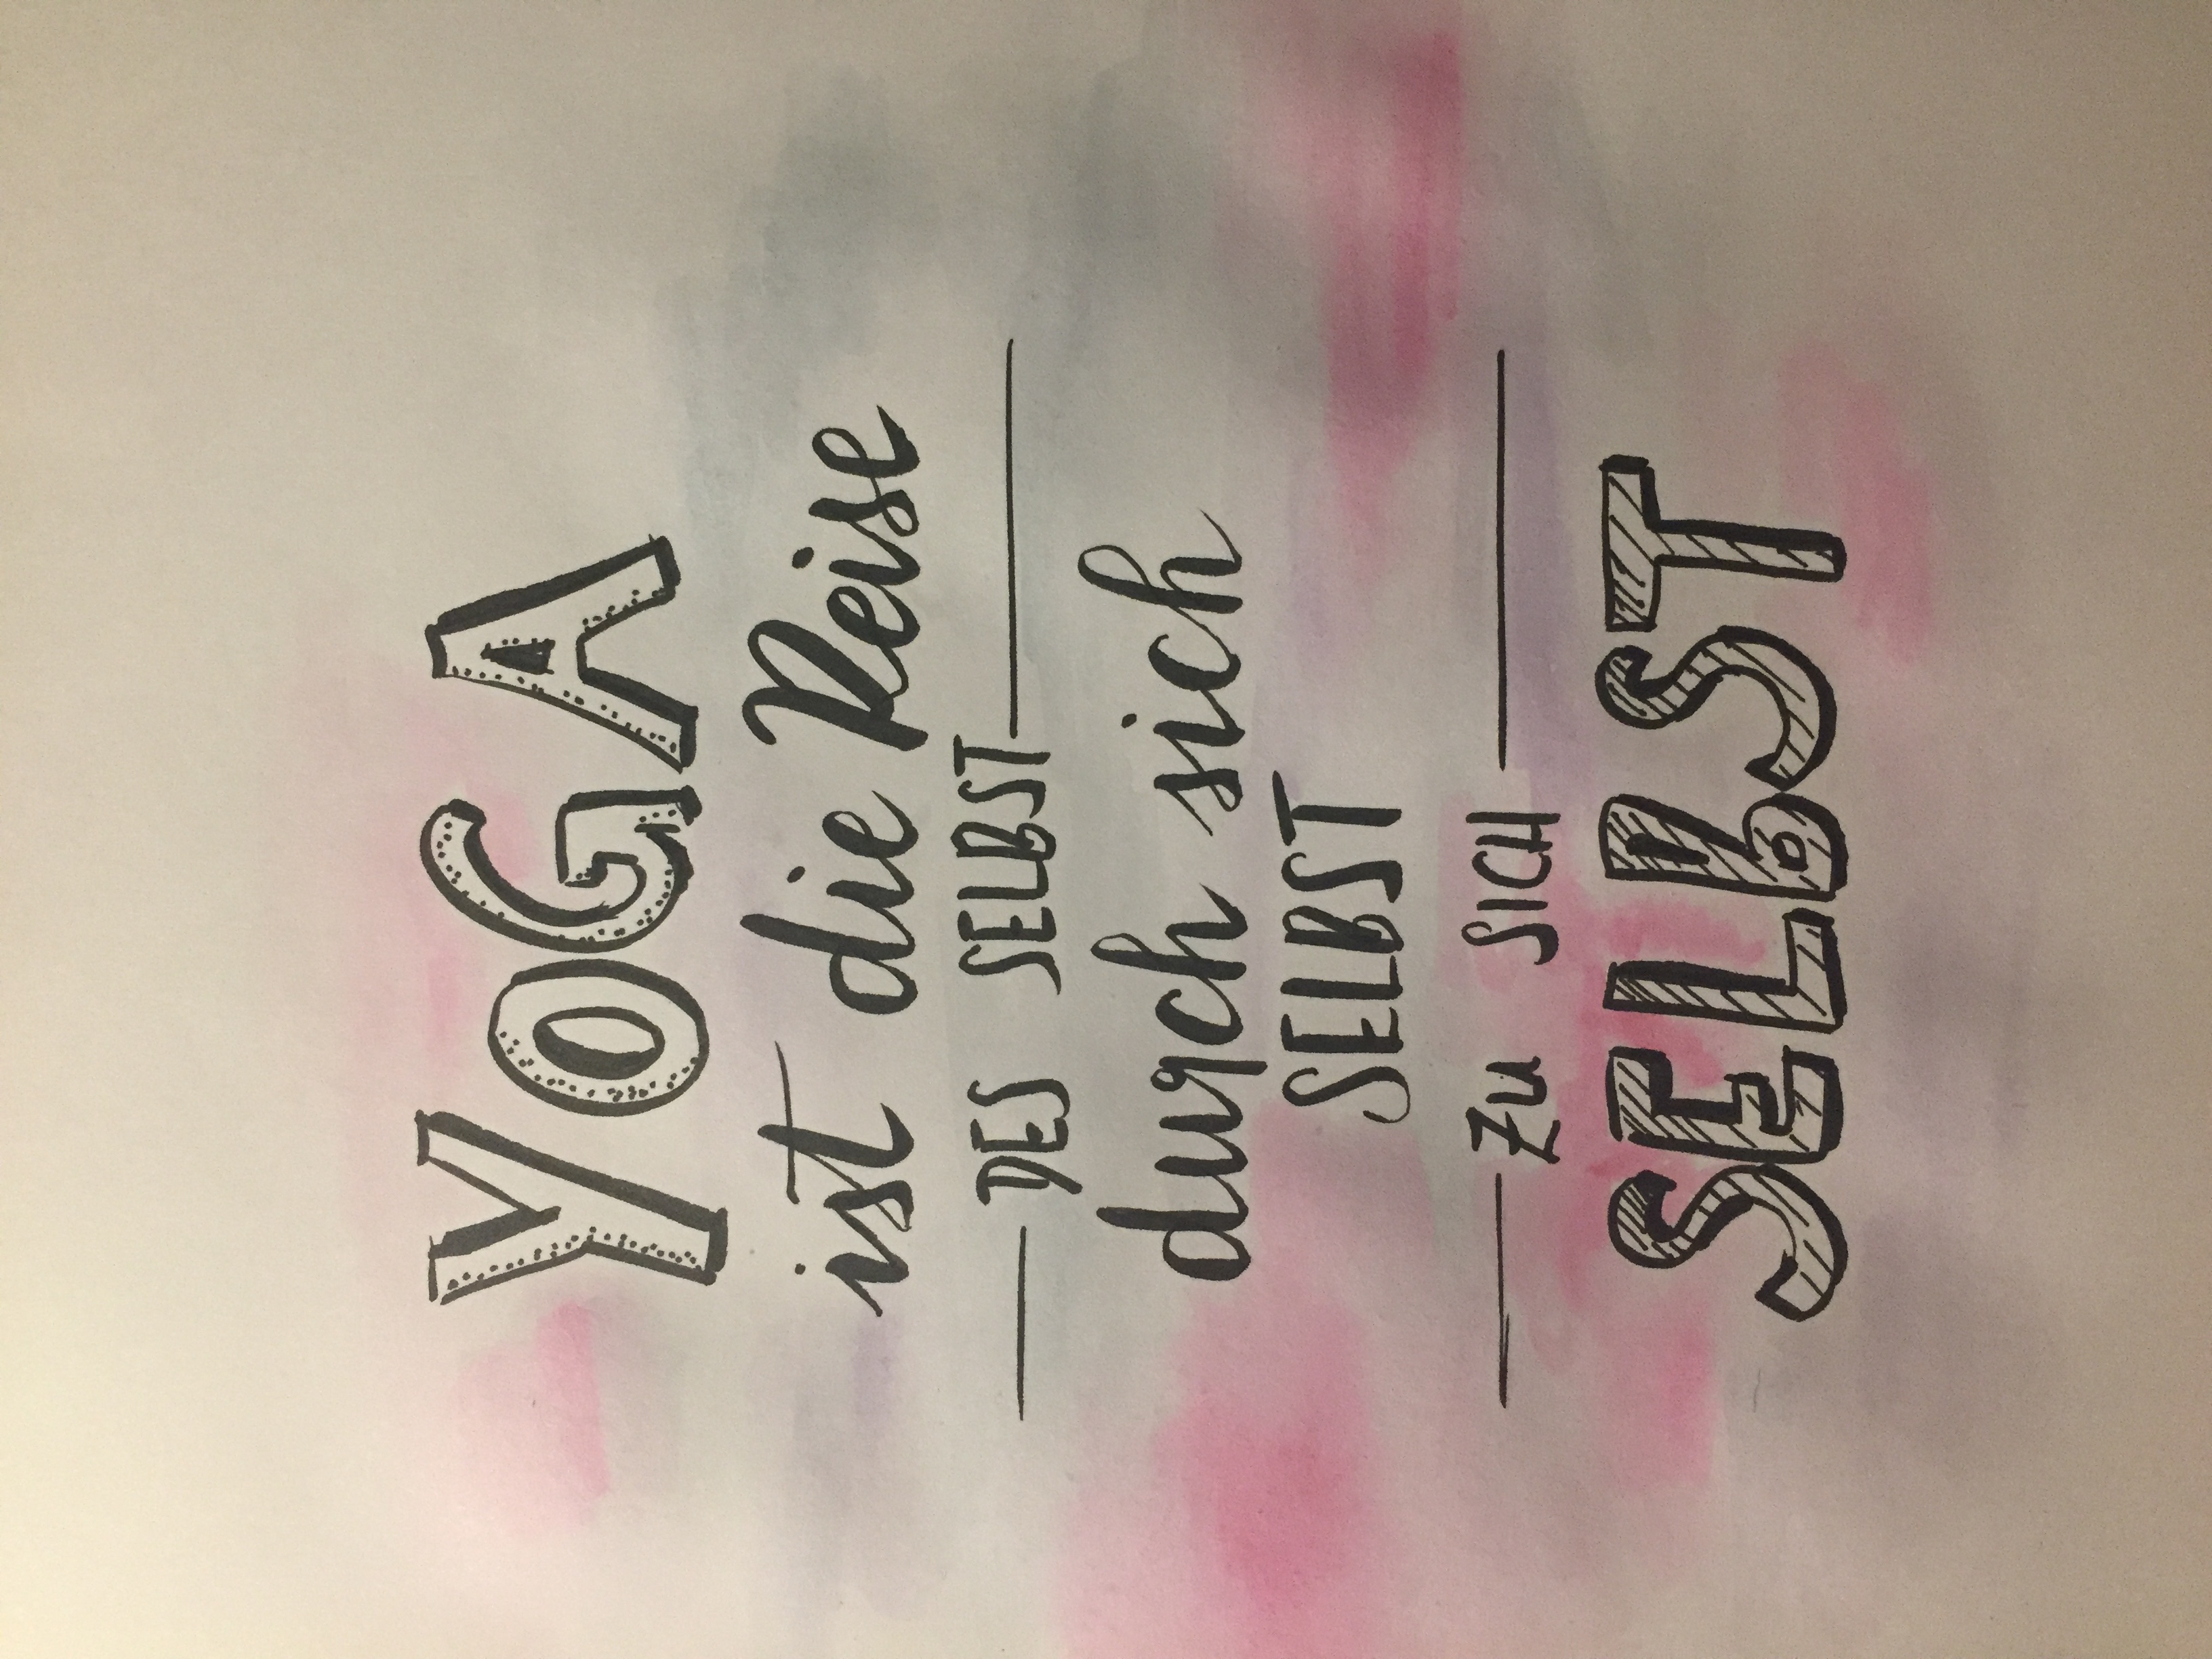 YOGA
ist die Reise
DES SELBST
durch sich
SELBST
Zu SICH
SELBST